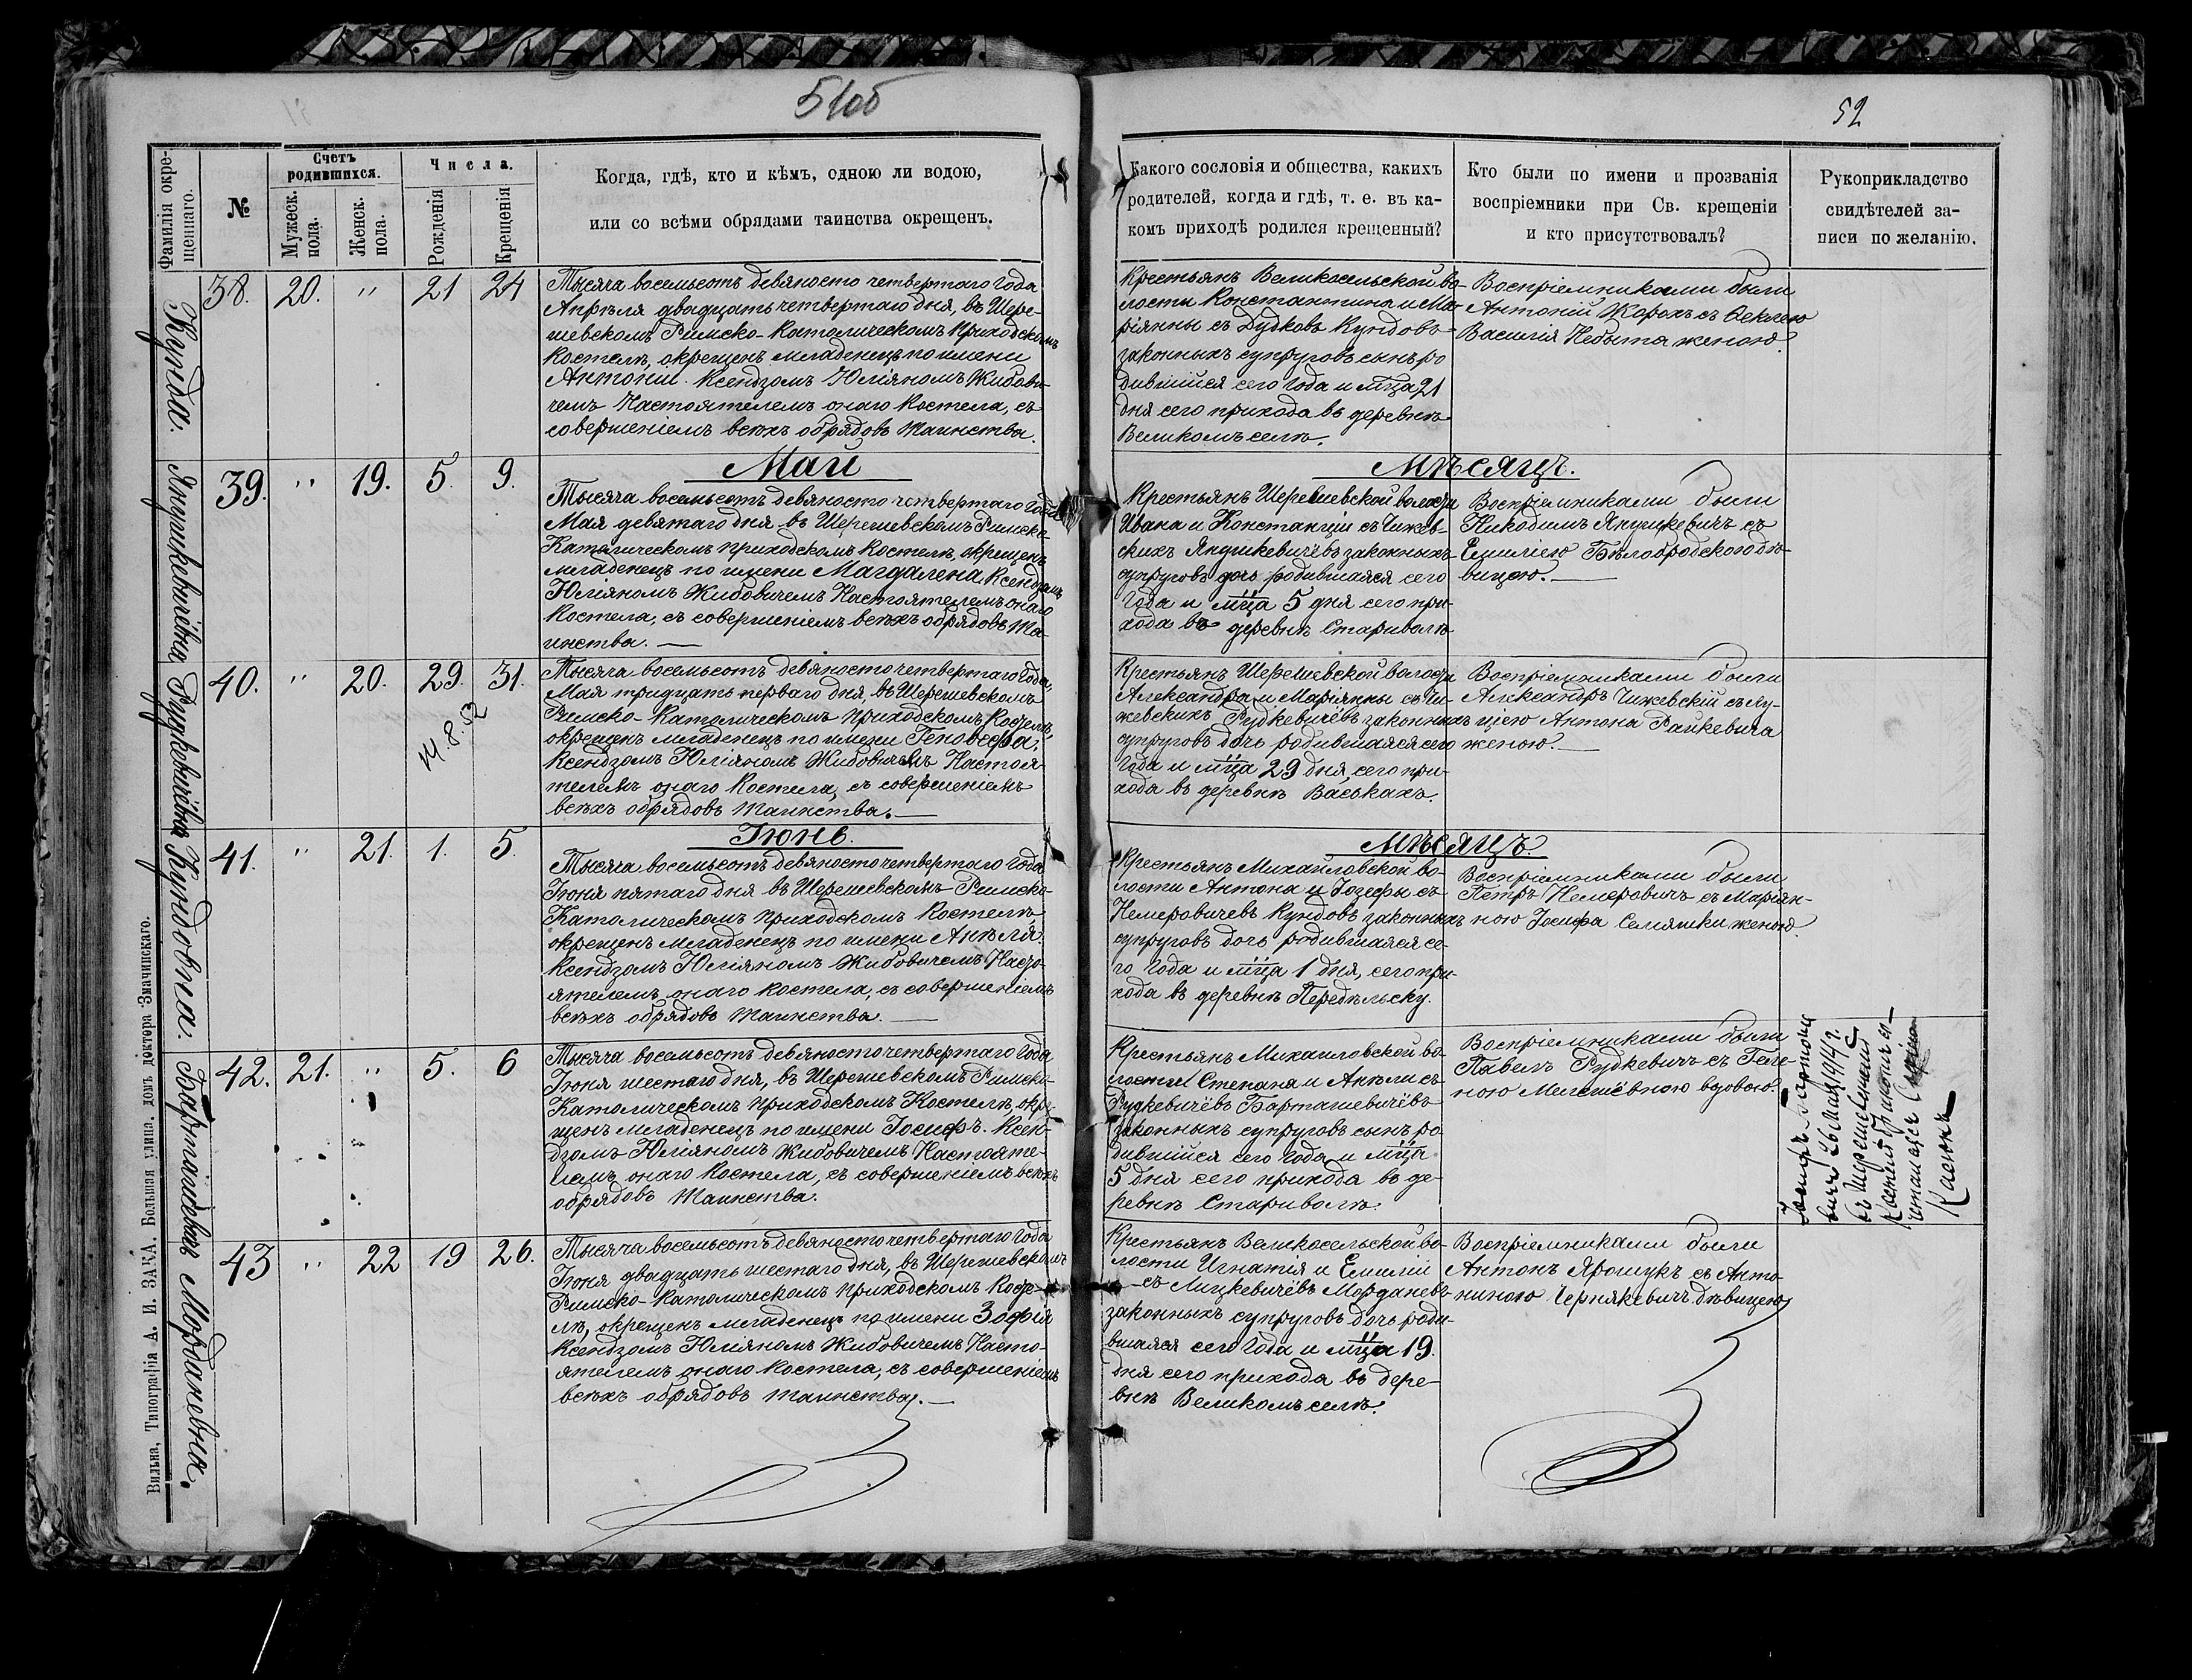 51об
52
Фамилія окре-
щеннаго.
№
Счетъ
родившихся.
Мужеск.
пола.
Женск.
пола.
Числа.
Рожденія
Крещенія
Когда, гдѣ, кто и кѣмъ, одною ли водою,
или со всѣми обрядами таинства окрещенъ.
Какого сословія и общества, какихъ
родителей, когда и гдѣ, т. е. въ ка-
комъ приходѣ родился крещенный?
Кто были по имени и прозванія
воспріемники при Св. крещеніи
и кто присутствовалъ?
Рукоприкладство
свидѣтелей за-
писи по желанію.
Кунда.
38. 20. " 21 24
Тысяча восемьсотъ девяносто четвертаго Года
Апрѣля двадцать четвертаго дня, въ Шере-
шевскомъ Римско-Католическомъ приходскомъ
Костелѣ, окрещенъ младенецъ по имени
Антоній. Ксендзомъ Юліяномъ Жибови-
чемъ Настоятелемъ онаго Костела, съ
совершеніемъ всѣхъ обрядовъ Таинства.
Крестьянъ Великосельской во-
лости Константина и Ма-
ріянны съ Дудковъ Кундовъ
законныхъ супруговъ сынъ ро
дившійся сего Года и мца 21
дня сего прихода въ деревнѣ
Великомъ селѣ.
Воспріемниками были
Антоній Жорохъ съ Феклею
Василія Небыта женою.
Май
Мѣсяцъ.
Янушкевичёвна
39. " 19. 5. 9.
Тысяча восемьсотъ девяносто четвертаго Года
Мая девятаго дня въ Шерешевскомъ Римско-
Католическомъ приходскомъ Костелѣ, окрещенъ
младенецъ по имени Магдалена, Ксендзомъ
Юліяномъ Жибовичемъ Настоятелемъ онаго
Костела, съ совершеніемъ всѣхъ обрядовъ Та-
инства. —
Крестьянъ Шерешевской волости
Ивана и Констанціи съ Чижев-
скихъ Янушкевичёвъ законныхъ
супруговъ дочь родившаяся сего
Года и мца 5 дня сего при-
хода въ деревнѣ Стариволѣ
Воспріемниками были
Никодимъ Янушкевичъ съ
Емиліею Бѣлобродскою дѣ-
вицею. —
Рудкевичёвна
40. " 20. 29. 31.
14.8.52
Тысяча восемьсотъ девяносто четвертаго Года,
Мая тридцать перваго дня, въ Шерешевскомъ
Римско-Католическомъ приходскомъ Костелѣ,
окрещенъ младенецъ по имени Геновефа,
Ксендзомъ Юліяномъ Жибовичемъ Настоя
телемъ онаго Костела, съ совершеніемъ
всѣхъ обрядовъ Таинства. —
Крестьянъ Шерешевской волости
Александра и Маріянны съ Чи-
жевскихъ Рудкевичёвъ законныхъ
супруговъ дочь родившаяся сего
Года и мца 29 дня, сего при-
хода въ деревнѣ Васькахъ.
Воспріемниками были
Александръ Чижевскій съ Лу-
цею Антона Райкевича
женою. —
Іюнь.
Мѣсяцъ.
Кундовна.
41. " 21. 1. 5.
Тысяча восемьсотъ девяносто четвертаго Года
Іюня пятаго дня въ Шерешевскомъ Римско-
Католическомъ приходскомъ Костелѣ,
окрещенъ младенецъ по имени Анѣля.
Ксендзомъ Юліяномъ Жибовичемъ Насто-
ятелемъ онаго Костела, съ совершеніемъ
всѣхъ обрядовъ Таинства. —
Крестьянъ Михайловской во-
лости Антона и Іозефы съ
Немеровичевъ Кундовъ законныхъ
супруговъ дочь родившаяся се-
го Года и мца 1 дня, сего при-
хода въ деревнѣ Передѣльску.
Воспріемниками были
Петръ Немеровичъ съ Маріян-
ною Іосифа Семяшки женою.
Барташевичъ
42. 21. " 5. 6
Тысяча восемьсотъ девяносто четвертаго Года
Іюня шестаго дня, въ Шерешевскомъ Римско-
Католическомъ приходскомъ Костелѣ, окре-
щенъ младенецъ по имени Іосифъ. Ксен-
дзомъ Юліяномъ Жибовичемъ Настояте-
лемъ онаго Костела, съ совершеніемъ всѣхъ
обрядовъ Таинства.
Крестьянъ Михайловской во-
лости Степана и Анѣли съ
Рудкевичёвъ Барташевичёвъ
законныхъ супруговъ сынъ ро-
дившійся сего Года и мца
5 дня сего прихода въ де-
ревнѣ Стариволѣ.
Воспріемниками были
Павелъ Рудкевичъ съ Геле-
ною Мелешёвною вдовою.
Іосифъ
26 Мая 1914 г.
въ Шерешевскомъ
Костелѣ
Мордачевна.
43 " 22 19 26.
Тысяча восемьсотъ девяносто четвертаго Года
Іюня двадцать шестаго дня, въ Шерешевскомъ
Римско-Католическомъ приходскомъ Косте-
лѣ, окрещенъ младенецъ по имени Зофія
Ксендзомъ Юліяномъ Жибовичемъ Насто-
ятелемъ онаго Костела, съ совершеніемъ
всѣхъ обрядовъ Таинства. —
Крестьянъ Великосельской во-
лости Игнатія и Емиліи
съ Лицкевичёвъ Мордачевъ
законныхъ супруговъ дочь роди-
вшаяся сего Года и мца 19.
дня сего прихода въ дере-
внѣ Великомъ селѣ.
Воспріемниками были
Антонъ Ярошукъ съ Анто-
ниною Чернякевичъ дѣвицею
Вильна, Типографія А. И. ЗАКА. Большая улица, домъ доктора Значинскаго.